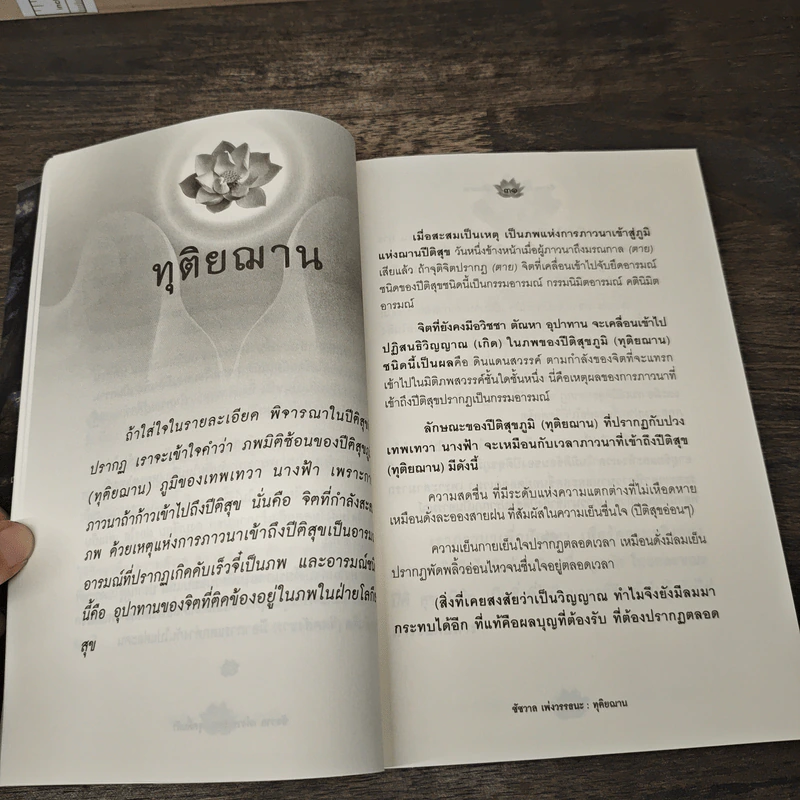 ทุติยฌาน
ถ้าใส่ใจในรายละเอียด พิจารณาในปีติสุข
ปรากฏ เราจะเข้าใจคำว่า ภพมิติซ้อนของปีติสุขภูมิ
(ทุติยฌาน) ภูมิของเทพเทวา นางฟ้า เพราะการ
ภาวนาถ้าก้าวเข้าไปถึงปีติสุข นั่นคือ จิตที่กำลังสะสม
ภพ ด้วยเหตุแห่งการภาวนาเข้าถึงปีติสุขเป็นอารมณ์
อารมณ์ที่ปรากฏเกิดดับเร็วจี๋เป็นภพ และอารมณ์
นี้คือ อุปาทานของจิตที่ติดข้องอยู่ในภพในฝ่ายโลกีย
สุข
๓๑
เมื่อสะสมเป็นเหตุ เป็นภพแห่งการภาวนาเข้าสู่ภูมิ
แห่งฌานปีติสุข วันหนึ่งข้างหน้าเมื่อผู้ภาวนาถึงมรณกาล (ตาย)
เสียแล้ว ถ้าจุติจิตปรากฏ (ตาย) จิตที่เคลื่อนเข้าไปจับยึดอารมณ์
ชนิดของปีติสุขชนิดนี้เป็นกรรมอารมณ์ กรรมนิมิตอารมณ์ คตินิมิต
อารมณ์
จิตที่ยังคงมีอวิชชา ตัณหา อุปาทาน จะเคลื่อนเข้าไป
ปฏิสนธิวิญญาณ (เกิด) ในภพของปีติสุขภูมิ (ทุติยฌาน)
ชนิดนี้เป็นผลคือ ดินแดนสวรรค์ ตามกำลังของจิตที่จะแทรก
เข้าไปในมิติภพสวรรค์ชั้นใดชั้นหนึ่ง นี่คือเหตุผลของการภาวนาที่
เข้าถึงปีติสุขปรากฏเป็นกรรมอารมณ์
ลักษณะของปีติสุขภูมิ (ทุติยฌาน) ที่ปรากฏกับปวง
เทพเทวา นางฟ้า จะเหมือนกับเวลาภาวนาที่เข้าถึงปีติสุข
(ทุติยฌาน) มีดังนี้
ความสดชื่น ที่มีระดับแห่งความแตกต่างที่ไม่เหือดหาย
เหมือนดั่งละอองสายฝน ที่สัมผัสในความเย็นชื่นใจ (ปีติสุขอ่อนๆ)
ความเย็นกายเย็นใจปรากฏตลอดเวลา เหมือนดั่งมีลมเย็น
ปรากฏพัดพลิ้วอ่อนไหวจนชื่นใจอยู่ตลอดเวลา
(สิ่งที่เคยสงสัยว่าเป็นวิญญาณ ทำไมจึงยังมีลมมา
กระทบได้อีก ที่แท้คือผลบุญที่ต้องรับ ที่ต้องปรากฏตลอด
ชัชวาล เพ่งวรรธนะ : ทุติยฌาน